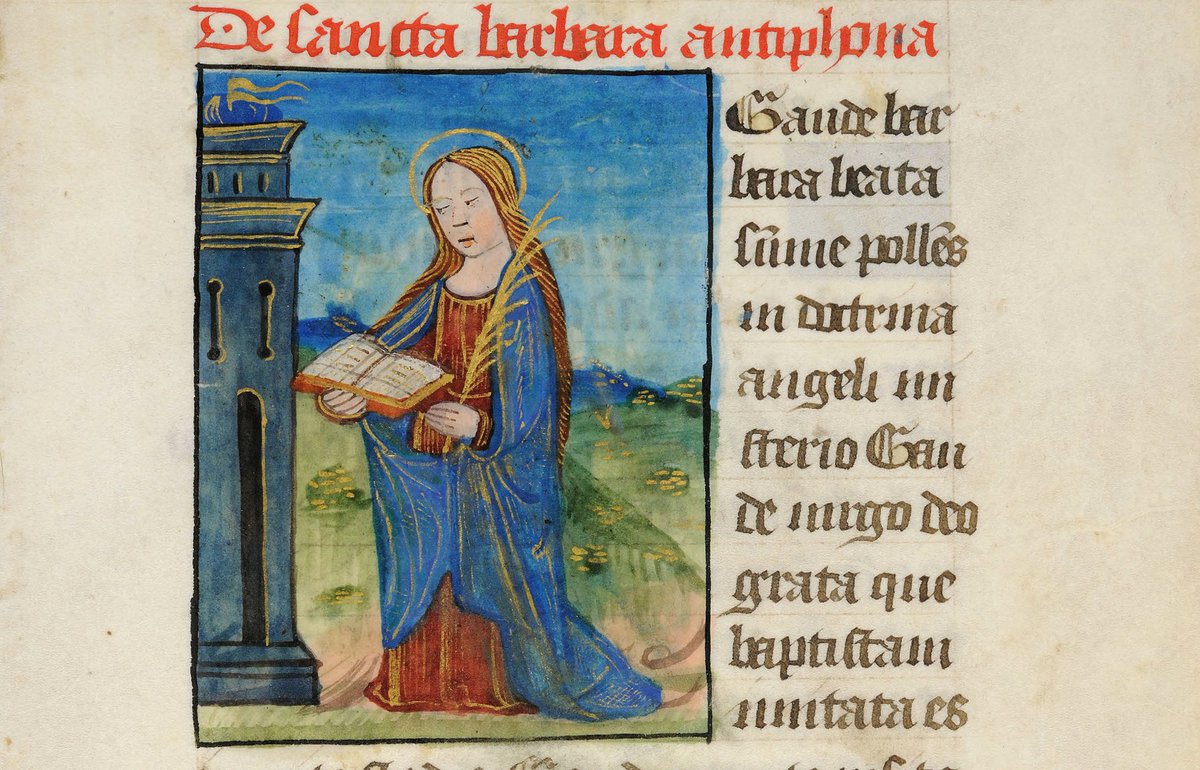 De sancta barbara antiphona
Gaude bar
bara beata
sūme pollēs
in doctrina
angeli mi
sterio Gau
de uirgo deo
grata que
baptistam
imitata es